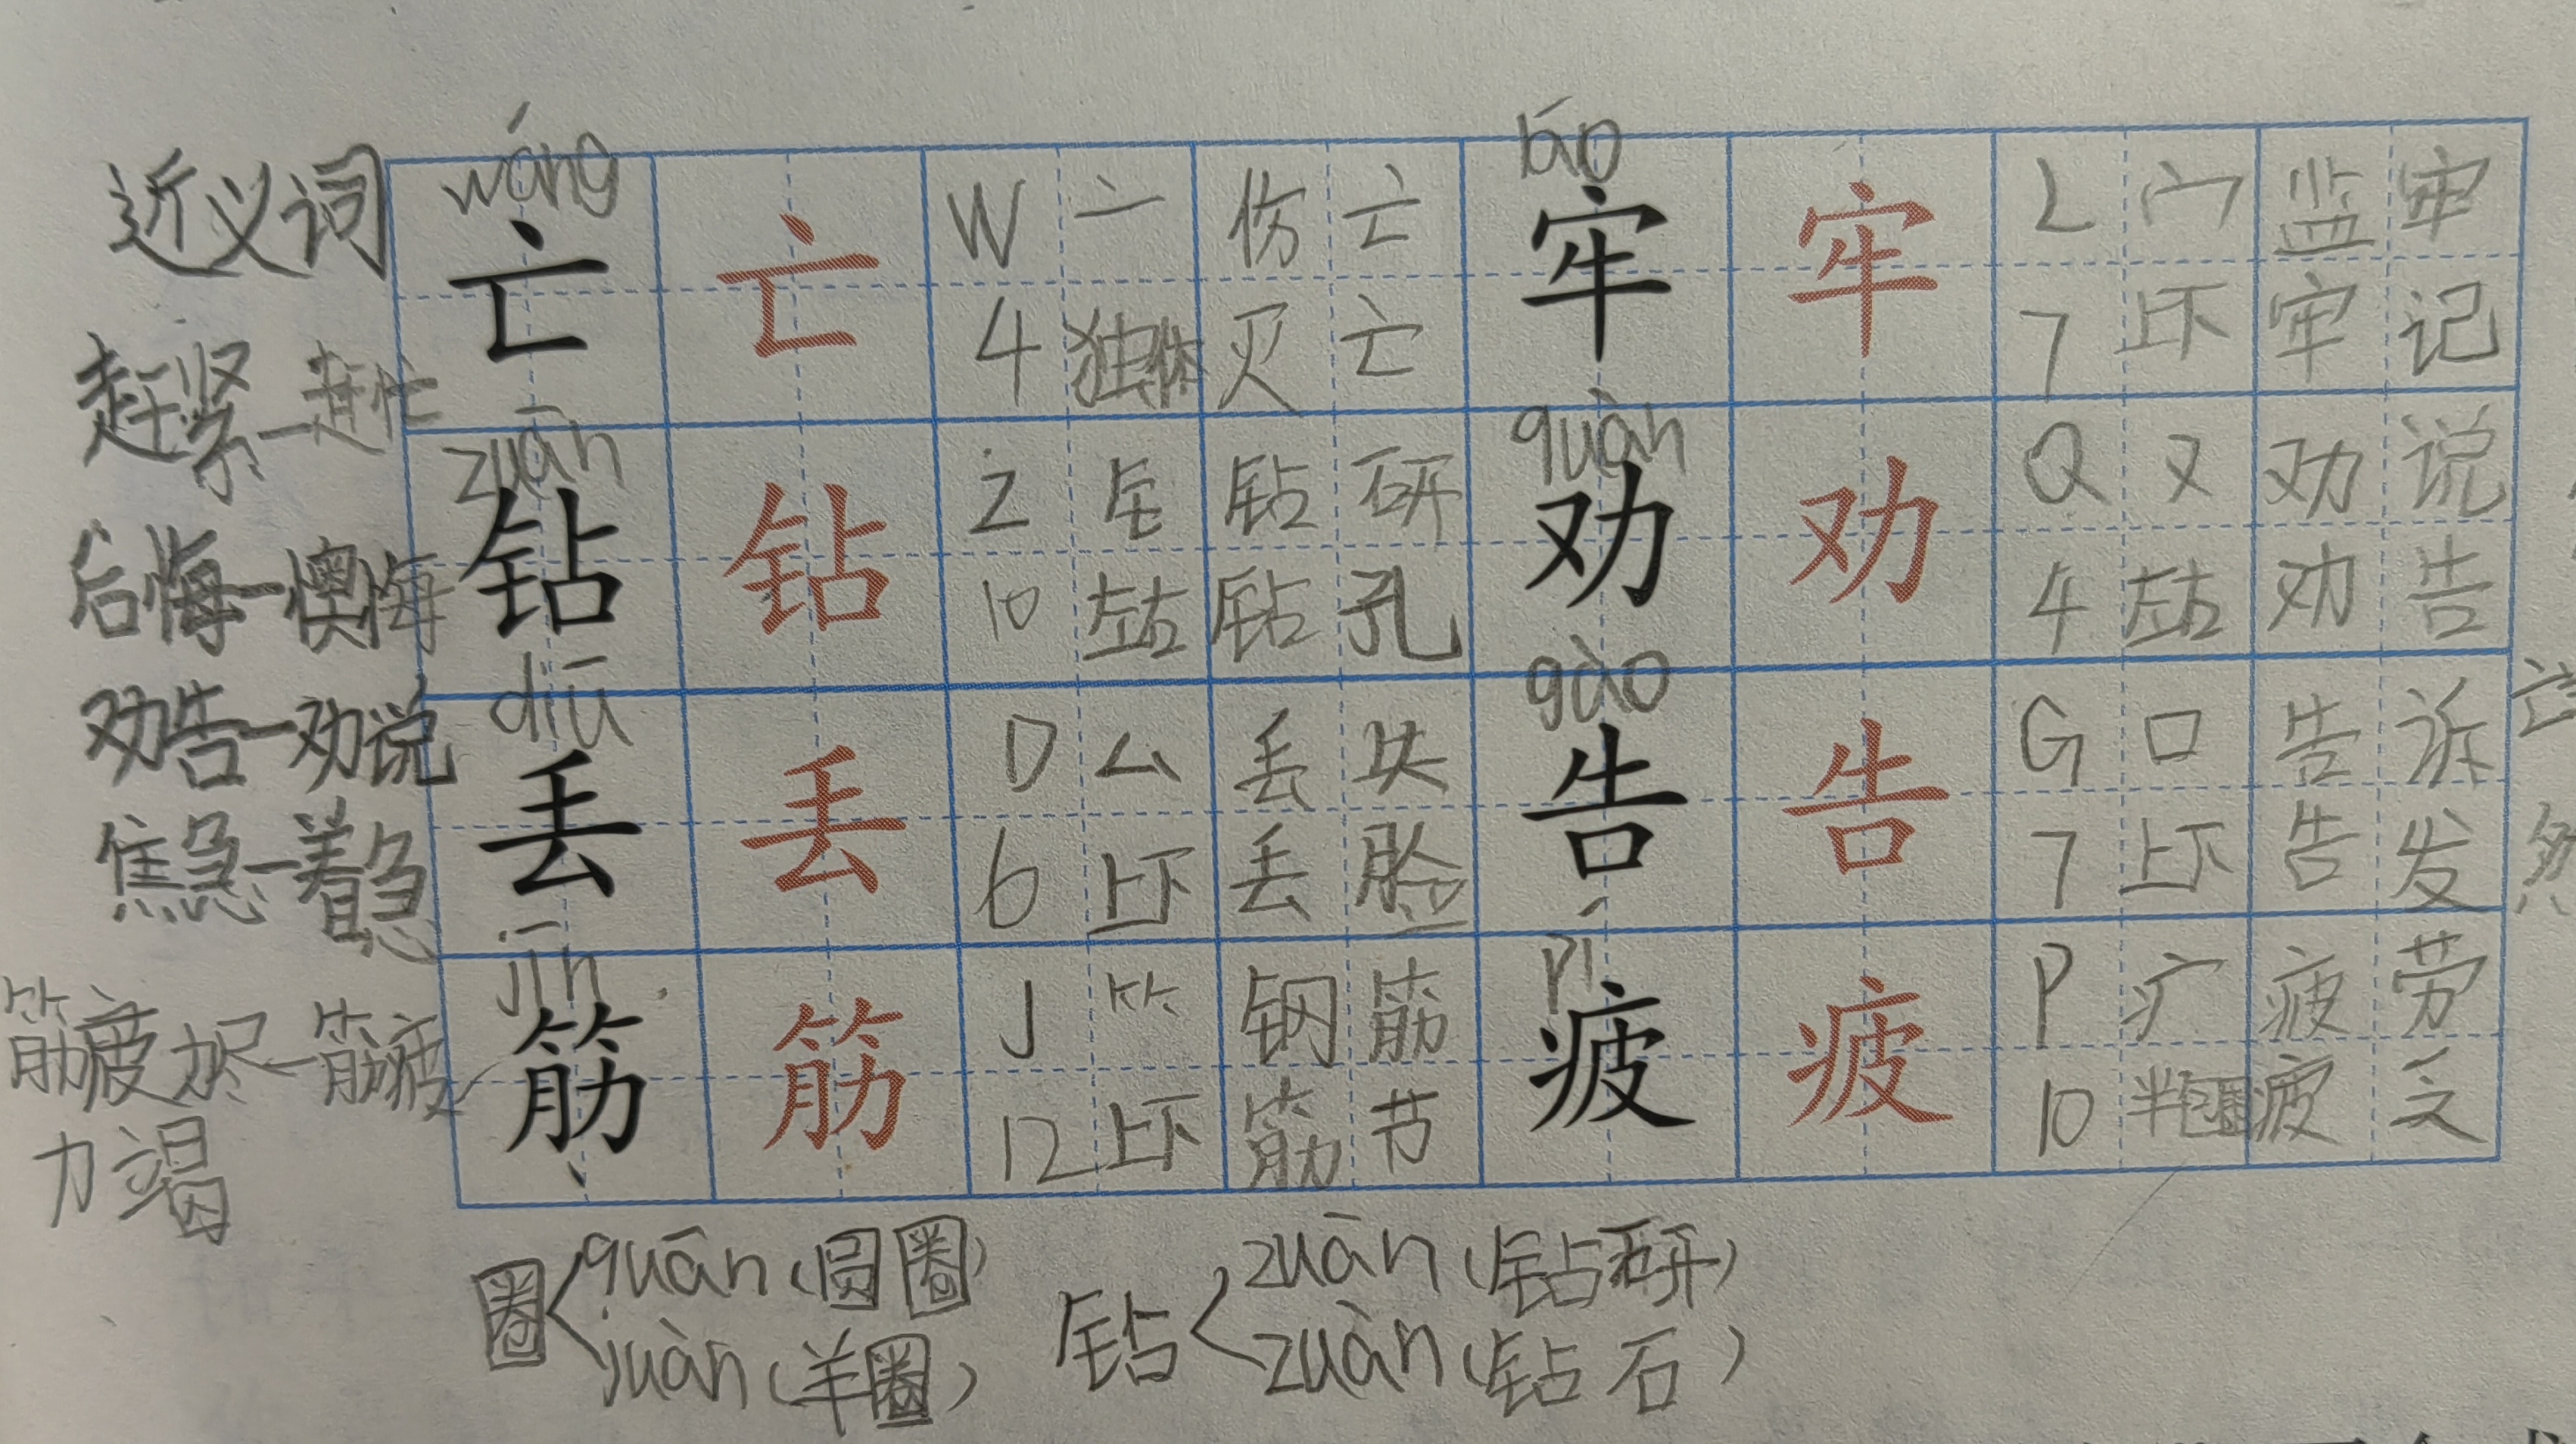 近义词
赶紧—赶忙
后悔—懊悔
劝告—劝说
焦急—着急
筋疲力尽—筋疲
力竭
wáng
亡 亡 W 亠 伤亡
4 独体 灭亡
láo
牢 牢 L 宀 监牢
7 上下 牢记
zuān
钻 钻 Z 钅 钻研
10 左右 钻孔
quàn
劝 劝 Q 又 劝说
4 左右 劝告
diū
丢 丢 D 厶 丢失
6 上下 丢脸
gào
告 告 G 口 告诉
7 上下 告发
jīn
筋 筋 J ⺮ 钢筋
12 上下 筋节
pí
疲 疲 P 疒 疲劳
10 半包围 疲乏
圈 quān(圆圈)
juàn(羊圈)
钻 zuān(钻研)
zuàn(钻石)